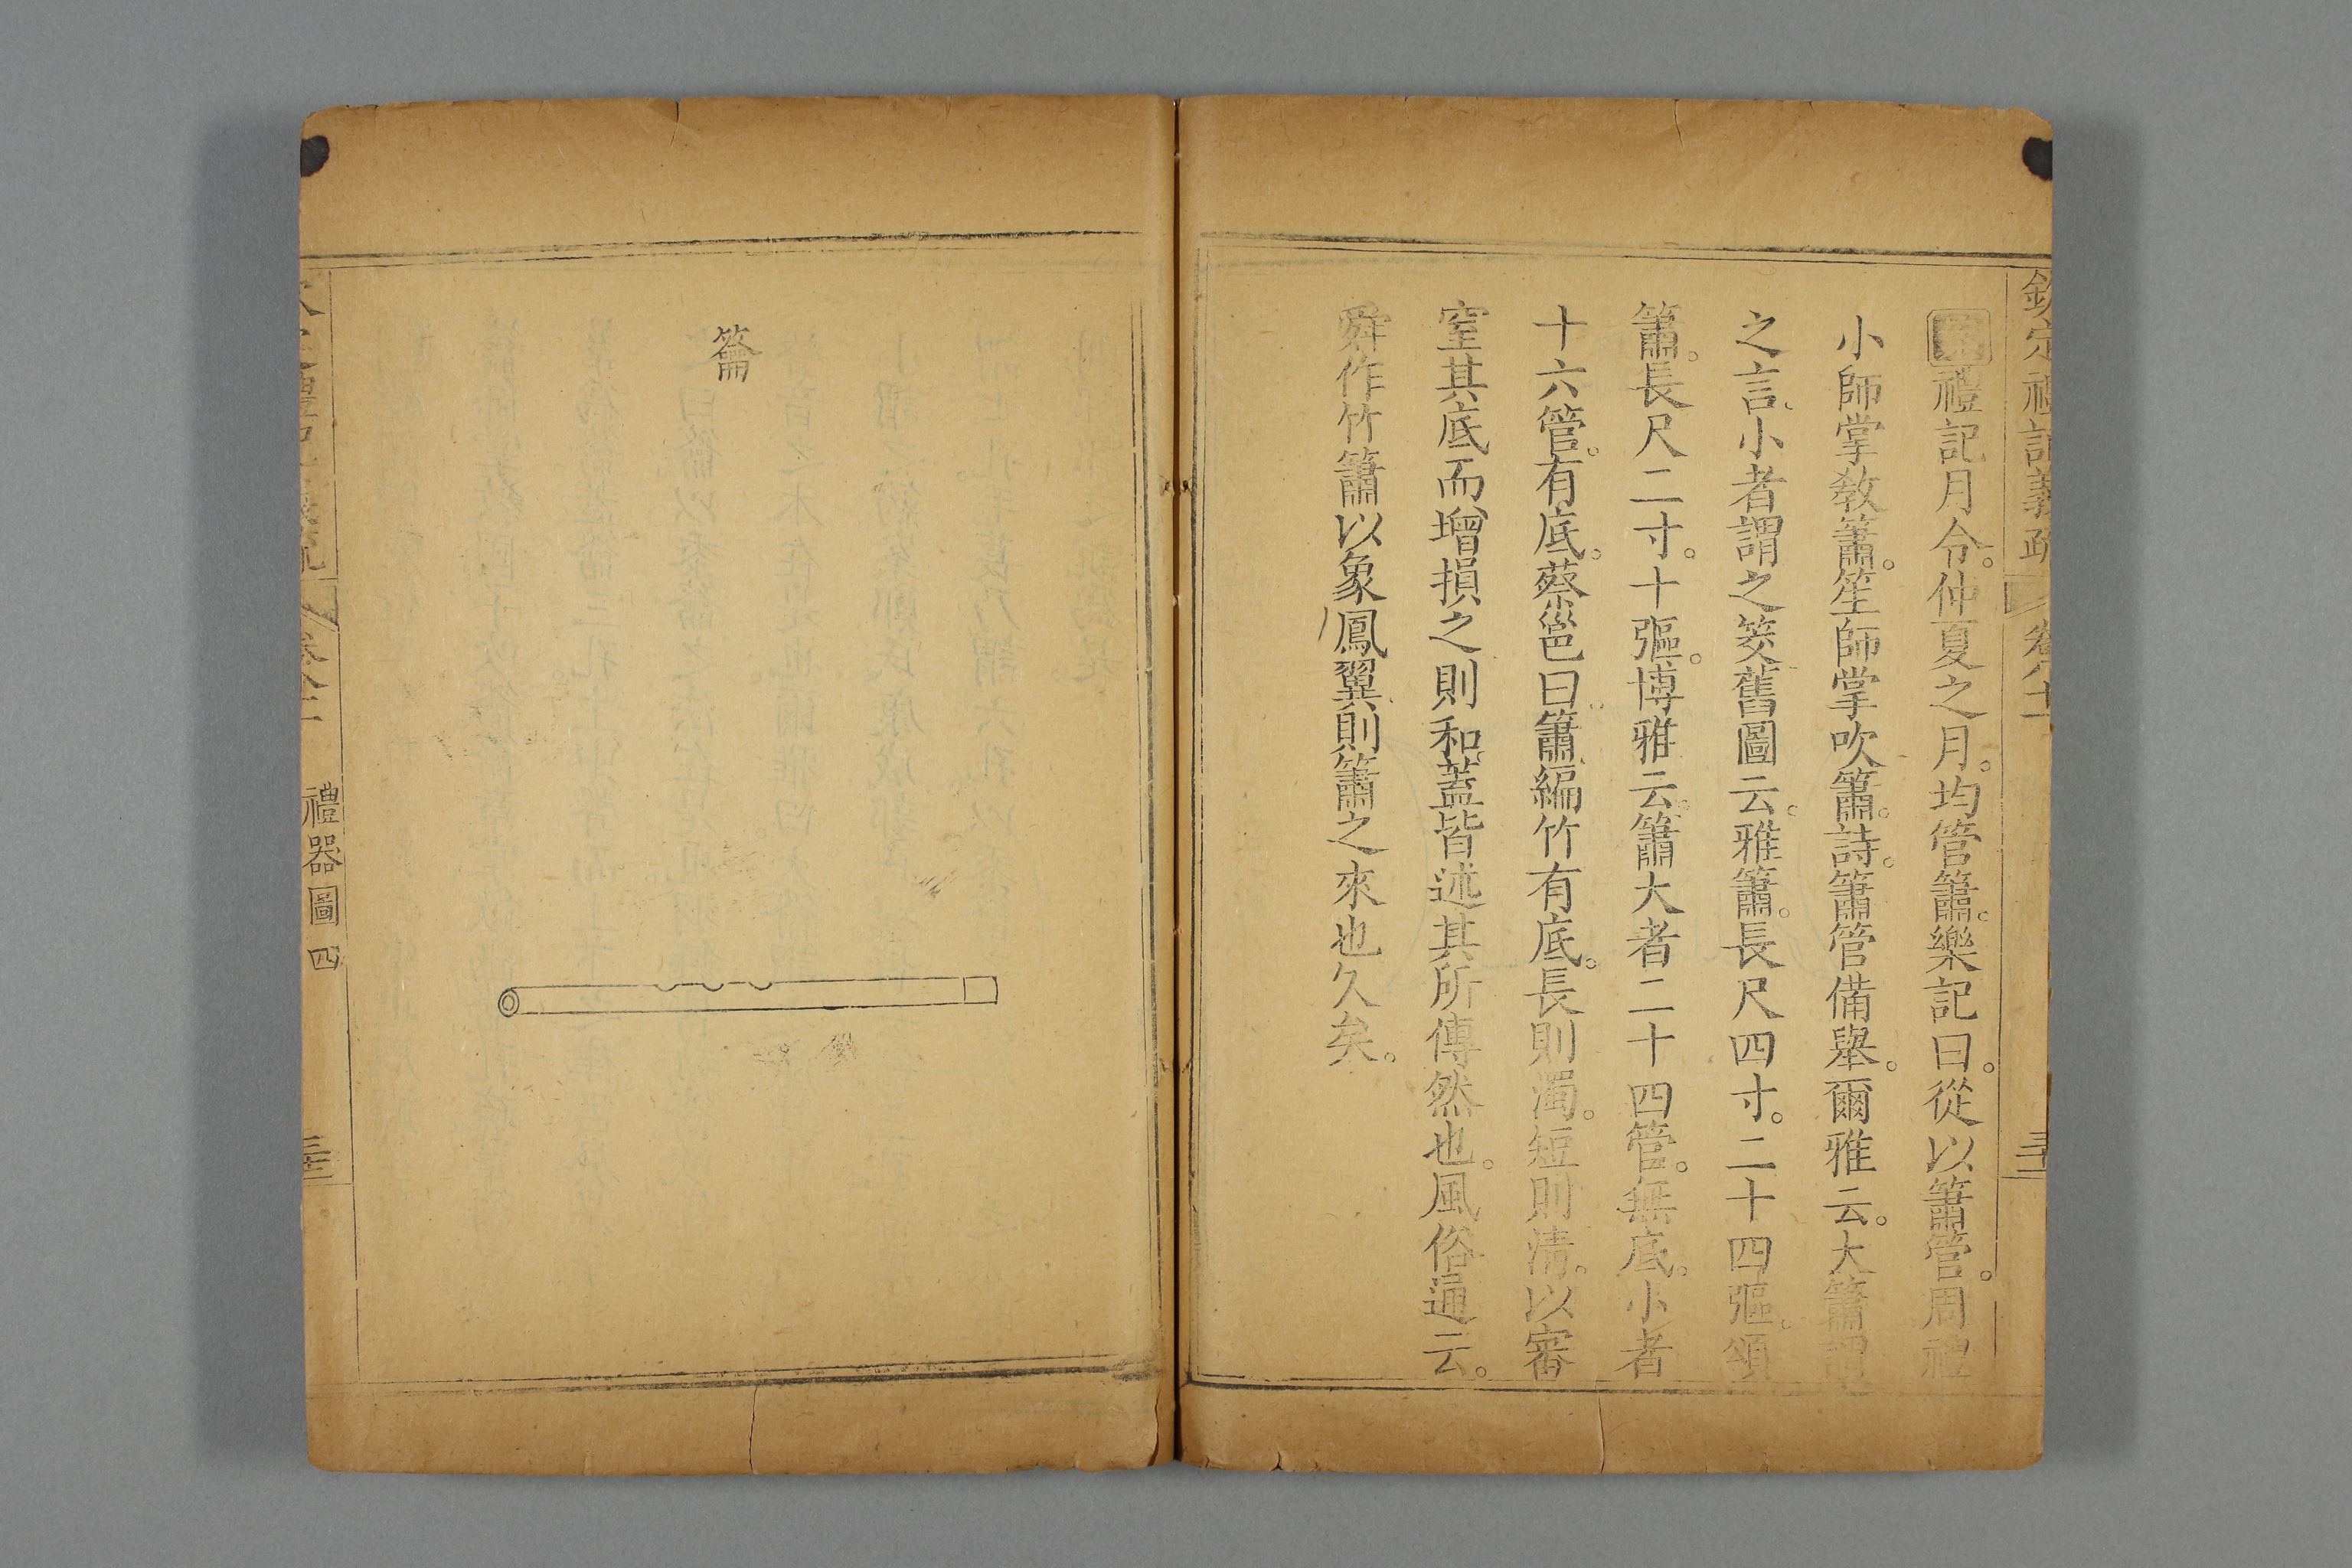 欽定禮記義疏 卷八十
禮記月令。仲夏之月。均管簫。樂記曰。從以簫管。周禮
小師掌敎簫。笙師掌吹簫。詩。簫管備舉。爾雅云。大簫謂
之言、小者謂之筊舊圖云。雅簫。長尺四寸。二十四彄。頌
簫。長尺二寸。十彄。博雅云。簫大者二十四管。無底。小者
十六管。有底。蔡邕曰。簫編竹有底。長則濁。短則清。以審
窒其底而增損之則和。蓋皆述其所傳然也。風俗通云。
舜作竹簫以象鳳翼則簫之來也久矣。
籥
禮器圖 四